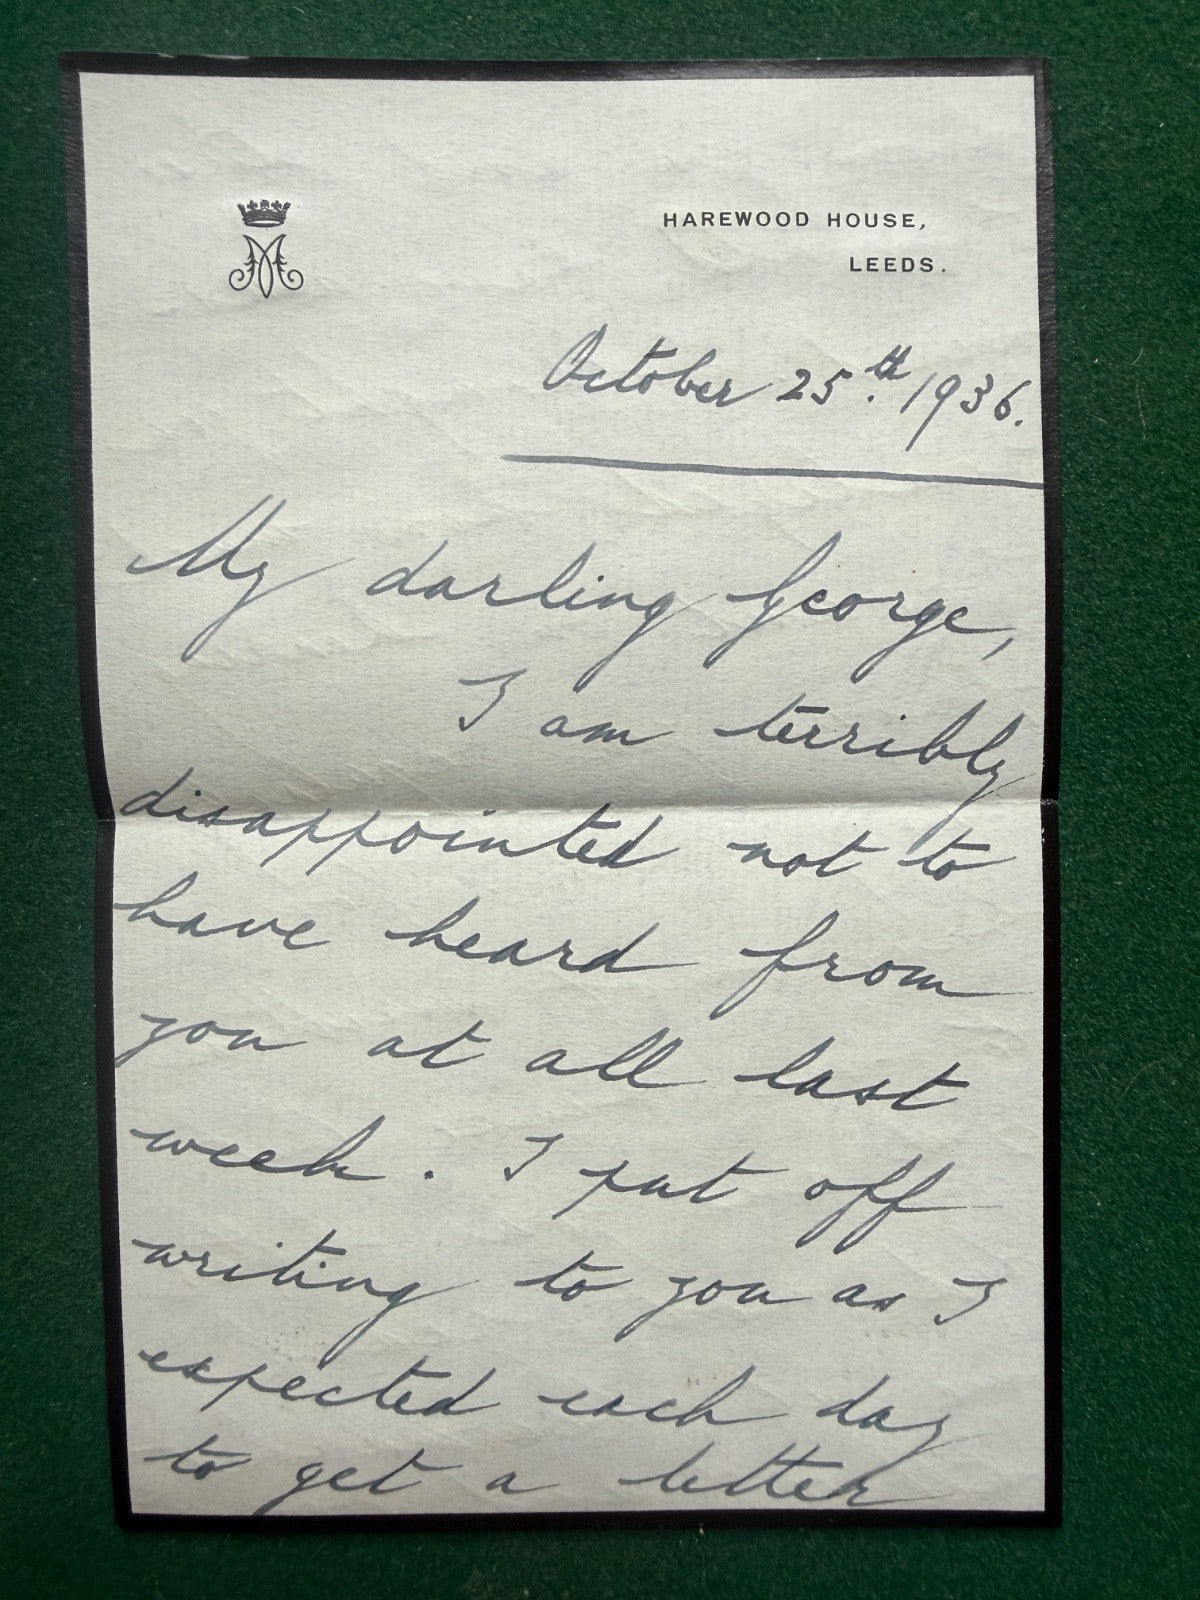 M
HAREWOOD HOUSE,
LEEDS.
October 25.th 1936.
My darling George,
I am terribly
disappointed not to
have heard from
you at all last
week. I put off
writing to you as I
expected each day
to get a letter